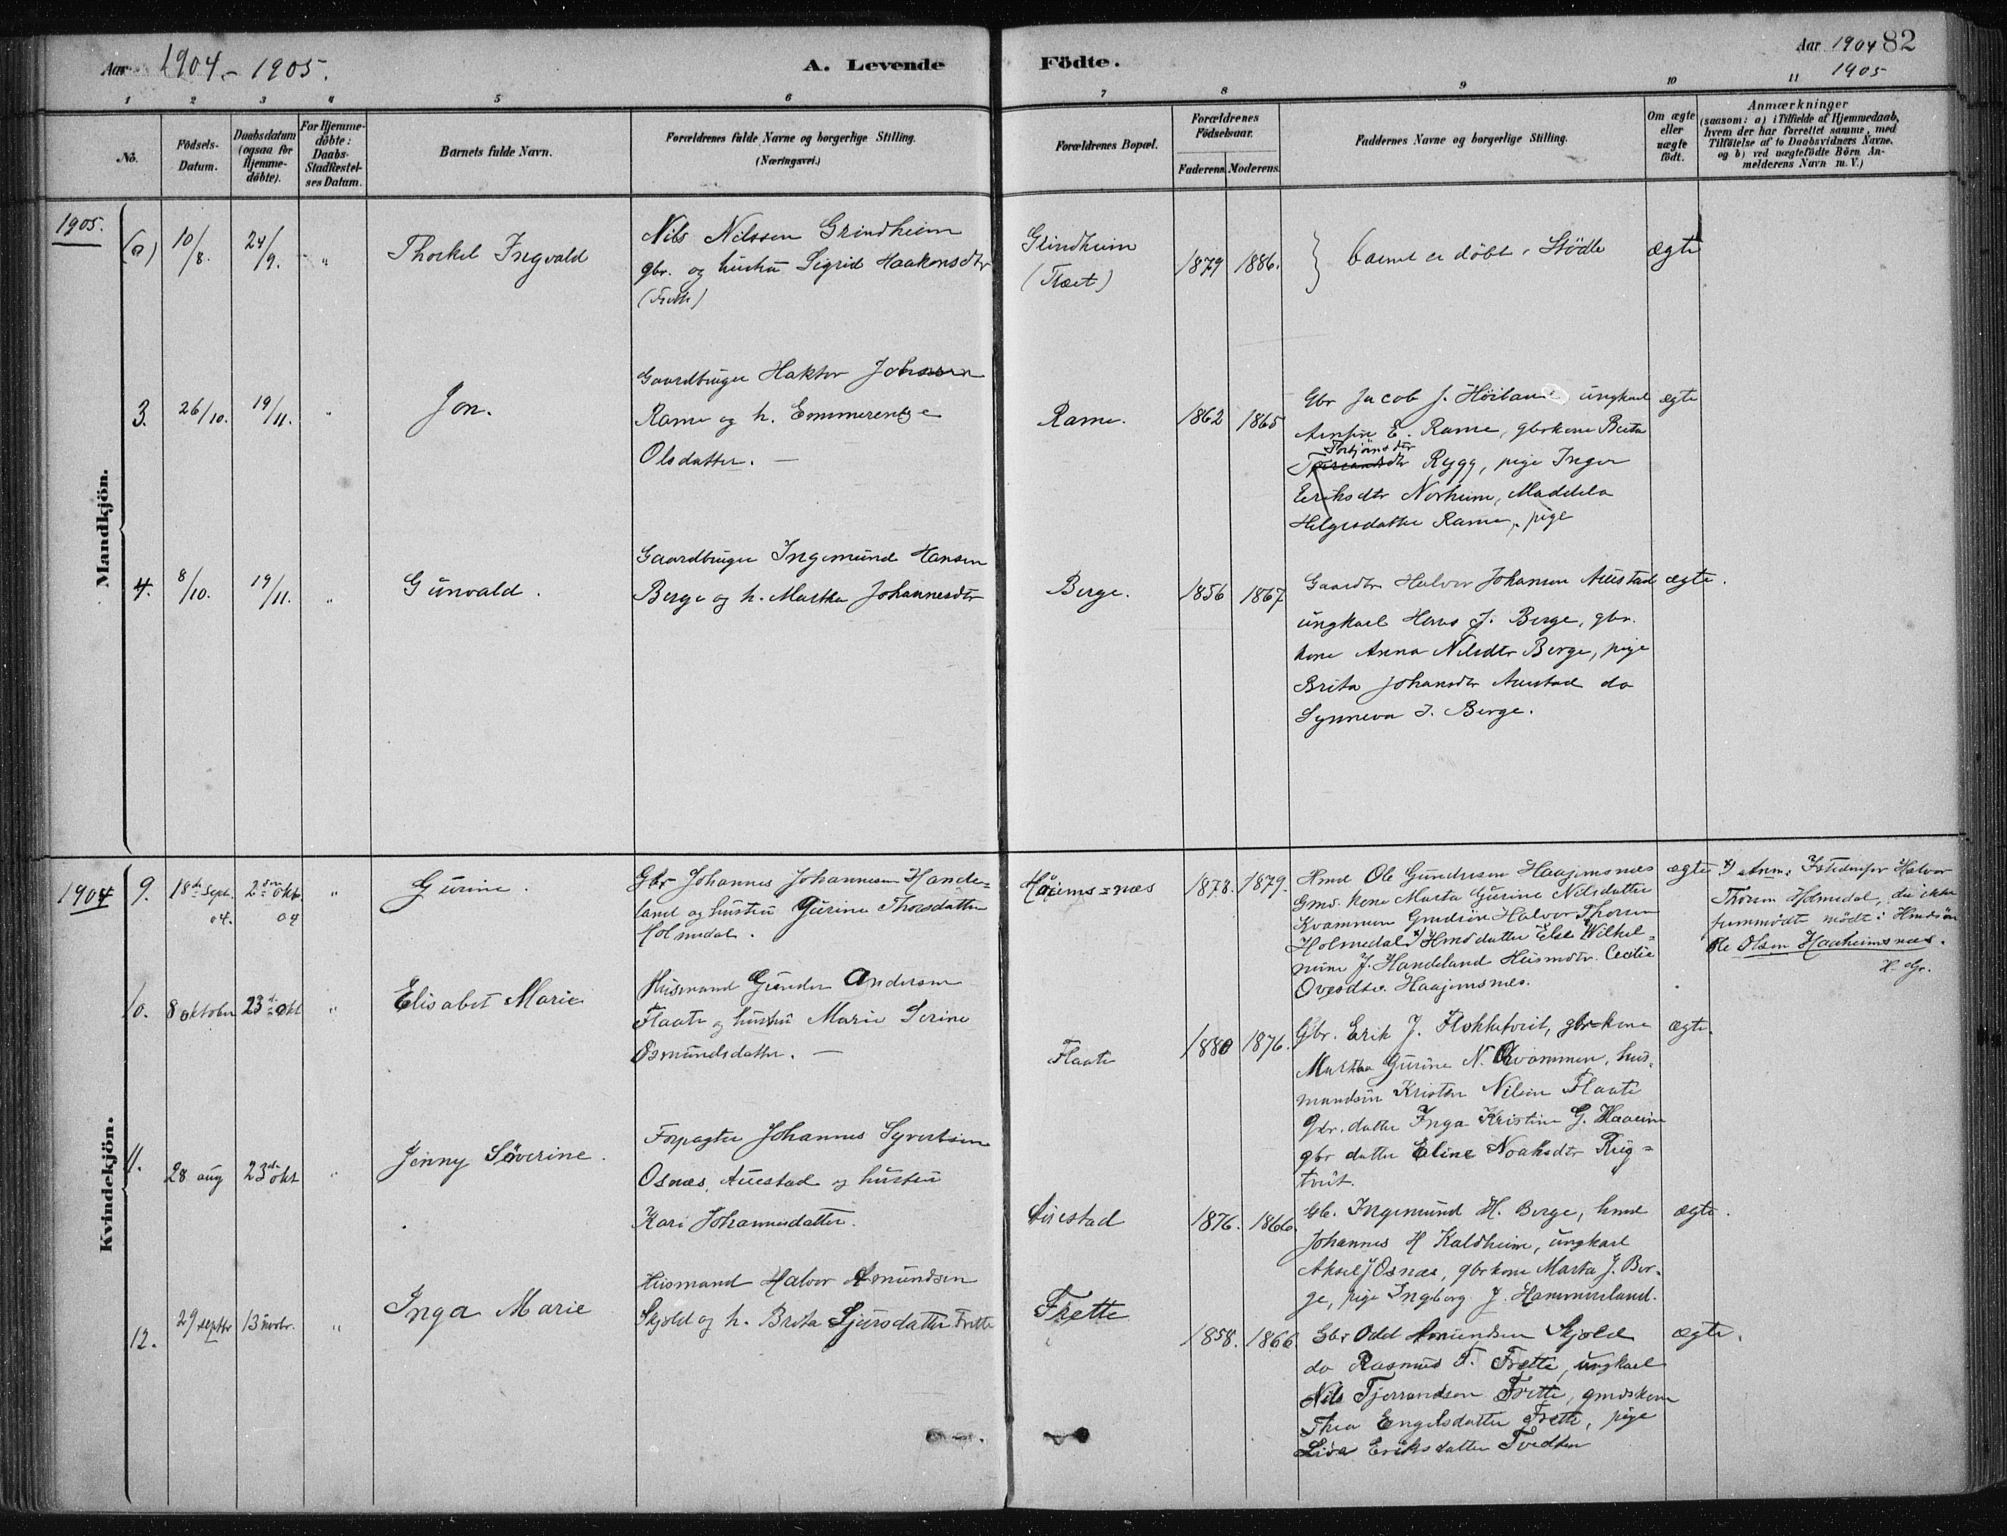 Aar 1904 - 1905.
A. Levende
Födte.
Aar 1904 82
1905
1 2 3 4 5 6 7 8 9 10 11
No.
Födsels-
Datum.
Daabsdatum
(ogsaa for
Hjemme-
döbte).
For Hjemme-
döbte:
Daabs-
Stadfæstel-
ses Datum.
Barnets fulde Navn.
Forældrenes fulde Navne og borgerlige Stilling.
(Næringsvei.)
Forældrenes Bopæl.
Forældrenes
Födselsaar.
Faderens. Moderens.
Faddernes Navne og borgerlige Stilling.
Om ægte
eller
uægte
födt.
Anmærkninger
(saasom: a) i Tilfælde af Hjemmedaab,
hvem der har forrettet samme, med
Tilföielse af to Daabsvidners Navne,
og b) ved uægtefödte Börn An-
melderens Navn m. V.)
Mandkjön.
1905.
(a) 10/8. 24/9. "
Thorkel Ingvald
Nils Nilssen Grindheim
gbr. og hustru Sigrid Haakonsdtr
Grindheim
1879 1886.
barnet er döbt i Stödle
ægte
3. 26/10. 19/11. "
Jon.
Gaardbruger Haktor
Rame og h. Emmerentse
Olsdatter. —
Rame.
1862 1865
Gbr Jacob J. ungkarl
E. Rame, gbrkone Berta
Torbjörnsdtr
Rygg, pige Inger
Eriksdtr Norheim, Maddela
Helgesdatter Rame, pige
ægte
4. 8/10. 19/11. "
Gunvald.
Gaardbruger Ingemund Hansen
Berge og h. Martha Johannesdtr
Berge.
1856 1867
Gaardbr Halvor Johansen Auestad
ungkarl Hans J. Berge, gbr.
kone Anna Nilsdtr Berge, pige
Brita Johansdtr Auestad do
Synneva I. Berge.
ægte.
Kvindekjön.
1904
9. 18de Sept. 04. 2den Okt. 04 "
Gurine.
Gbr Johannes Johannesen Hande-
land og hustru Gurine Thoresdatter
Holmedal.
1878. 1879.
Hmd Ole Gundersen Haajemsnæs
Gmds. kone Marta Gurine Nilsdatter
Kvammen Halvor Thorsen
Holmedal x) Hmdsdatter Else Wilhel-
mine J. Handeland Cecilie
Ovesdtr. Haajemsnæs.
ægte
Halvor
Thorsen Holmedal, da ikke
fremmödt mödte: Hmdsön
Ole Olsen Haaheimsnæs.
H. Gr.
10. 8 oktober 23de okt "
Elisabet Marie
Husmand Gunder Andersen
Flaate og hustru Marie Serine
Osmundsdatter. —
Flaate
1880 1876.
Gbr. Erik J. gbrkone
Martha Gurine N. Kvammen, hus-
mandsön Kristen Nilsen Flaate
Gbr. datter Inga Kristine G. Haaeim
gbr datter Eline Noahsdtr Rug-
tvit.
ægte.
11. 28 aug 23de okt "
Jenny Söverine.
Forpagter Johannes Syvertsen
Osnæs, Auestad og hustru
Kari Johannesdatter.
Auestad
1876. 1866.
Gb. Ingemund H. Berge, hmd
Johannes H Kaldheim, ungkarl
Aksel J Osnæs, gbrkone Marta J. Ber-
ge, pige Ingborg J. Hammersland.
ægte.
12. 29 septbr 13 novbr. "
Inga Marie
Husmand Halvor Amundsen
Skjold og h. Brita Sjursdatter Frette
Frette
1858. 1866.
Gbr Odd Amundsen Skjold
do Rasmus T. Frette, ungkarl
Nils Tjerrandsen Frette, gmdskone
Thea Engelsdatter Frette, pige
Lisa Eriksdatter Tvedten
ægte.